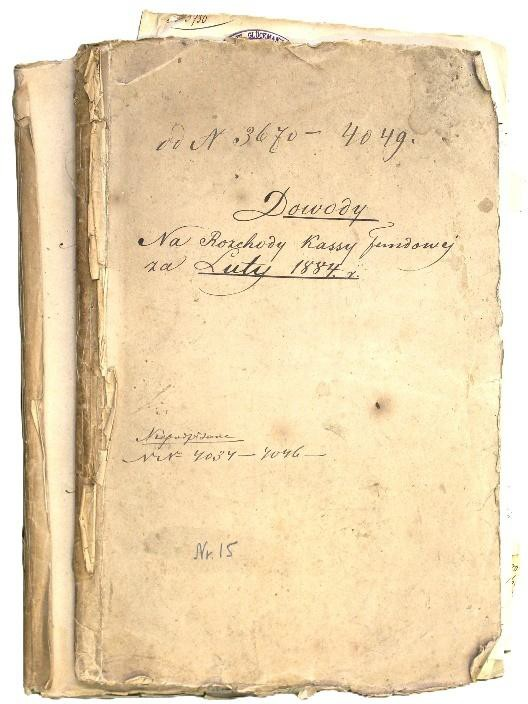 od N 3670 – 4049.
Dowody
Na Rozchody Kassy Fundowej
za Luty 1884. r.
Niepodpisane
NN 4037 – 4046 –
Nr. 15